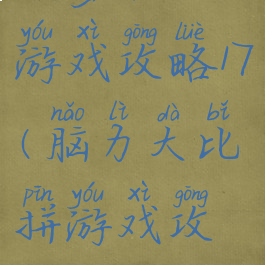 yóu xì gōng lüè
游戏攻略17
nǎo lì dà bǐ
(脑力大比
pīn yóu xì gōng
拼游戏攻